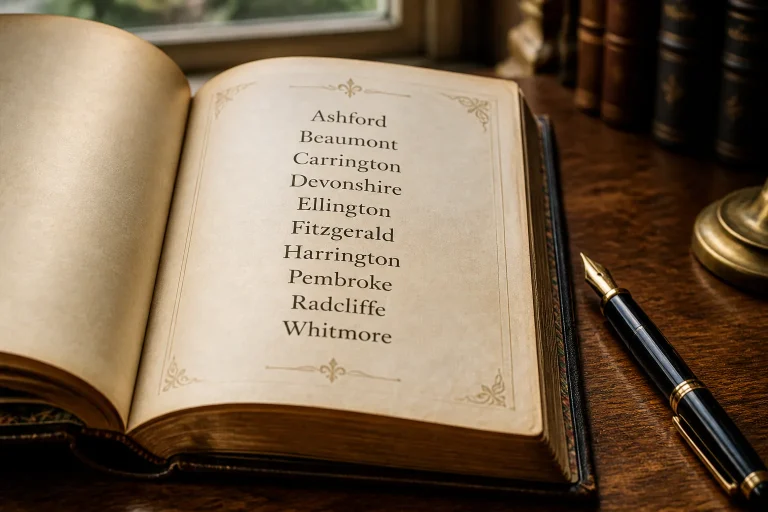 Ashford
Beaumont
Carrington
Devonshire
Ellington
Fitzgerald
Harrington
Pembroke
Radcliffe
Whitmore